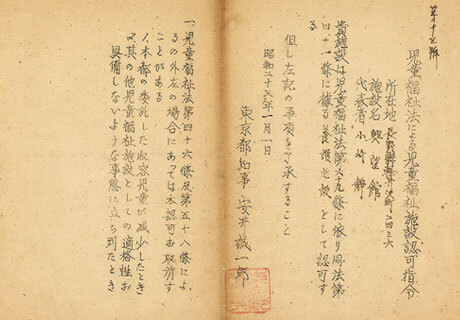 児童福祉法による児童福祉施設認可指令
所在地
施設名 興望館
代表者
貴施設は児童福祉法第六十九條に依り同法第
四十一條に據る養護施設として認可す
る
但し左記の事項を了承すること
昭和二十三年一月一日
東京都知事 安井誠一郎
一、児童福祉法第四十六條及五十八條によ
るの外左の場合にあっては本認可お取消す
ことがある
イ、本都の委託した収容児童が減少したとき
ロ、其の他児童福祉施設としての適格性お
具備しないような事態に立ち到たとき